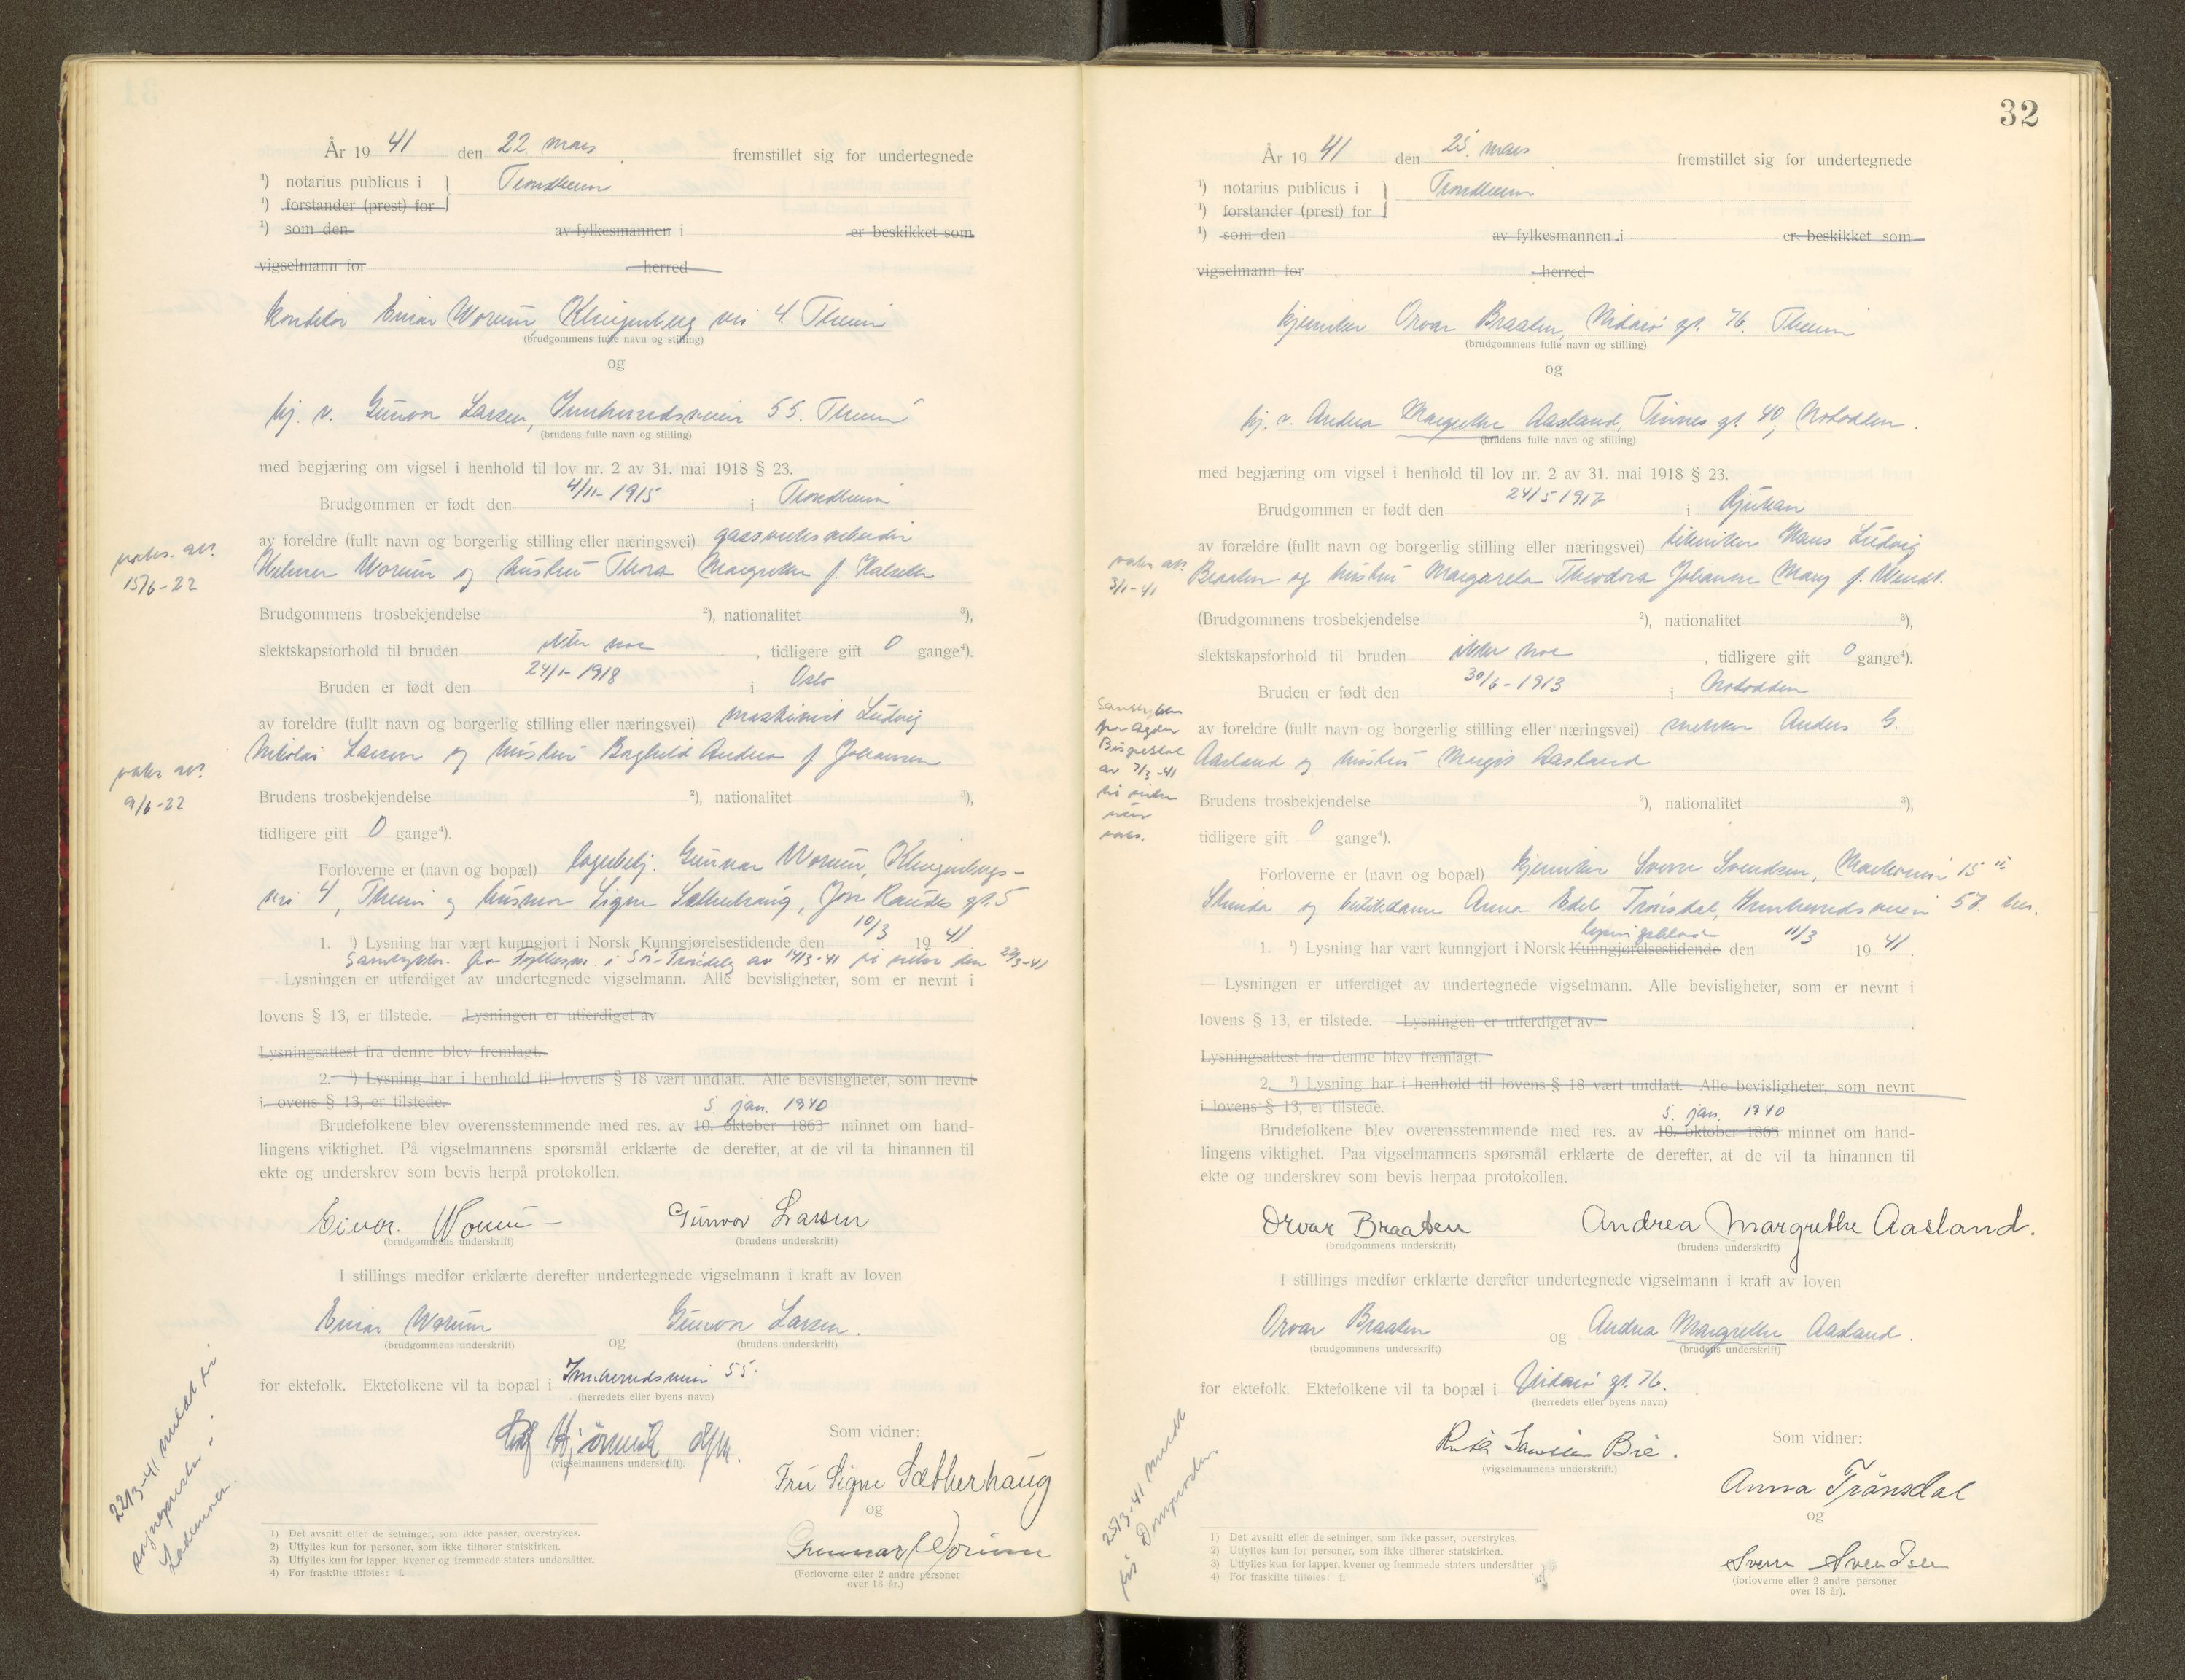 År 19 41 den 22 mars fremstillet sig for undertegnede
¹) notarius publicus i } Trondheim
¹) forstander (prest) for
¹) som den av fylkesmannen i er beskikket som
vigselmann for herred
konditor Einar Worum, Klingenberg vei 4. Theim
(brudgommens fulle navn og stilling)
og
hj. v. Gunvor Larsen, Innherredsveien 55. Theim
(brudens fulle navn og stilling)
med begjæring om vigsel i henhold til lov nr. 2 av 31. mai 1918 § 23.
Brudgommen er født den 4/11-1915 i Trondheim
av foreldre (fullt navn og borgerlig stilling eller næringsvei) gassverksarbeider
vaks. att.
15/6-22
Helmer Worum og hustru Thora Margrethe f. Halseth
Brudgommens trosbekjendelse ²), nationalitet ³),
slektskapsforhold til bruden ikke noe , tidligere gift 0 gange⁴).
Bruden er født den 24/1-1918 i Oslo
av foreldre (fullt navn og borgerlig stilling eller næringsvei) maskinist Ludvig
Nikolai Larsen og hustru Borghild Andrea f. Johansen
vaks. att.
9/6-22
Brudens trosbekjendelse ²), nationalitet ³),
tidligere gift 0 gange⁴).
Forloverne er (navn og bopæl) lagerbetj. Gunnar Worum, Klingenbergs-
vei 4, Theim og husmor Signe Sætherhaug, Jon Raudes gt. 5
1. ¹) Lysning har vært kunngjort i Norsk Kunngjørelsestidende den 10/3 19 41
Samtykke fra Fylkesm. i Sør-Trøndelag av 14/3-41 til vielse den 22/3-41
— Lysningen er utferdiget av undertegnede vigselmann. Alle bevisligheter, som er nevnt i
lovens § 13, er tilstede. — Lysningen er utferdiget av
Lysningsattest fra denne blev fremlagt.
2. ¹) Lysning har i henhold til lovens § 18 vært undlatt. Alle bevisligheter, som nevnt
i ovens § 13, er tilstede.
5. jan. 1940
Brudefolkene blev overensstemmende med res. av 10. oktober 1863 minnet om hand-
lingens viktighet. På vigselmannens spørsmål erklærte de derefter, at de vil ta hinannen til
ekte og underskrev som bevis herpå protokollen.
Einar. Worum Gunvor Larsen
(brudgommens underskrift) (brudens underskrift)
I stillings medfør erklærte derefter undertegnede vigselmann i kraft av loven
Einar Worum og Gunvor Larsen.
(brudgommens underskrift) (brudens underskrift)
for ektefolk. Ektefolkene vil ta bopæl i Innherredsveien 55.
(herredets eller byens navn)
(vigselmannens underskrift).
Som vidner:
Fru Signe Sætherhaug
og
Gunnar Worum
(Forloverne eller 2 andre personer
over 18 år.)
22/3-41 meldt til
sogneprestn i
Lademoen.
1) Det avsnitt eller de setninger, som ikke passer, overstrykes.
2) Utfylles kun for personer, som ikke tilhører statskirken.
3) Utfylles kun for lapper, kvener og fremmede staters undersåtter.
4) For fraskilte tilføies: f.
32
År 19 41 den 25. mars fremstillet sig for undertegnede
¹) notarius publicus i } Trondheim
¹) forstander (prest) for
¹) som den av fylkesmannen i er beskikket som
vigselmann for herred
kjemiker Orvar Braaten, Nidarø gt. 76. Theim
(brudgommens fulle navn og stilling)
og
hj. v. Andrea Margrethe Aasland, Tinnes gt. 40, Notodden.
(brudens fulle navn og stilling)
med begjæring om vigsel i henhold til lov nr. 2 av 31. mai 1918 § 23.
Brudgommen er født den 24/5 1917 i Rjukan
av forældre (fullt navn og borgerlig stilling eller næringsvei) tekniker Hans Ludvig
vaks att.
3/1-41
Braaten og hustru Margareta Theodora Johanne Mary f. Wendt.
(Brudgommens trosbekjendelse ²), nationalitet ³),
slektskapsforhold til bruden ikke noe , tidligere gift 0 gange⁴).
Bruden er født den 30/6-1913 i Notodden
av foreldre (fullt navn og borgerlig stilling eller næringsvei) snekker Anders G.
Aasland og hustru Margit Aasland
Samtykke
fra Agder
Bispestol
av 7/3-41
til vielse
uten
vaks.
Brudens trosbekjendelse ²), nationalitet ³),
tidligere gift 0 gange⁴).
Forloverne er (navn og bopæl) kjemiker Sverre Svendsen, Marknesvei 15
Strinda og Anna Edel Trønsdal, Innherredsveien 57. her.
Lysningsblad
1. ¹) Lysning har vært kunngjort i Norsk Kunngjørelsestidende den 11/3 19 41.
— Lysningen er utferdiget av undertegnede vigselmann. Alle bevisligheter, som er nevnt i
lovens § 13, er tilstede. — Lysningen er utferdiget av
Lysningsattest fra denne blev fremlagt.
2. ¹) Lysning har i henhold til lovens § 18 vært undlatt. Alle bevisligheter, som nevnt
i lovens § 13, er tilstede.
5. jan. 1940
Brudefolkene blev overensstemmende med res. av 10. oktober 1863 minnet om hand-
lingens viktighet. Paa vigselmannens spørsmål erklærte de derefter, at de vil ta hinannen til
ekte og underskrev som bevis herpaa protokollen.
Orvar Braaten Andrea Margrethe Aasland.
(brudgommens underskrift) (brudens underskrift)
I stillings medfør erklærte derefter undertegnede vigselmann i kraft av loven
Orvar Braaten og Andrea Margrethe Aasland.
(brudgommens underskrift) (brudens underskrift)
for ektefolk. Ektefolkene vil ta bopæl i Nidarø gt. 76.
(herredets eller byens navn)
(vigselmannens underskrift.)
Som vidner:
Anna Trønsdal
og
Sverre Svendsen
(forloverne eller 2 andre personer
over 18 år).
25/3-41 meldt
til Domprosten
1) Det avsnitt eller de setninger, som ikke passer, overstrykes.
2) Utfylles kun for personer, som ikke tilhører statskirken.
3) Utfylles kun for lapper, kvener og fremmede staters undersåtter
4) For fraskilte tilføies: f.